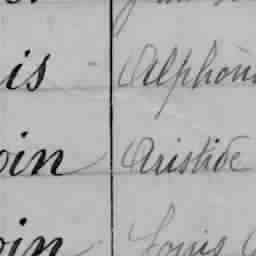 is Alphons
oin Aristide
oin Louis